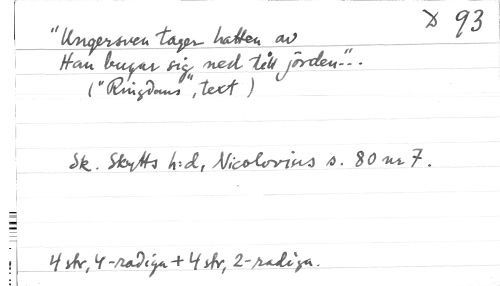 D 93
"Ungersven tager hatten av
Han bugar sig ned till jorden"...
("Ringdans", text)
Sk. Skytts h:d, Nicolovius s. 80 nr 7.
4 str, 4-radiga + 4 str, 2-radiga.